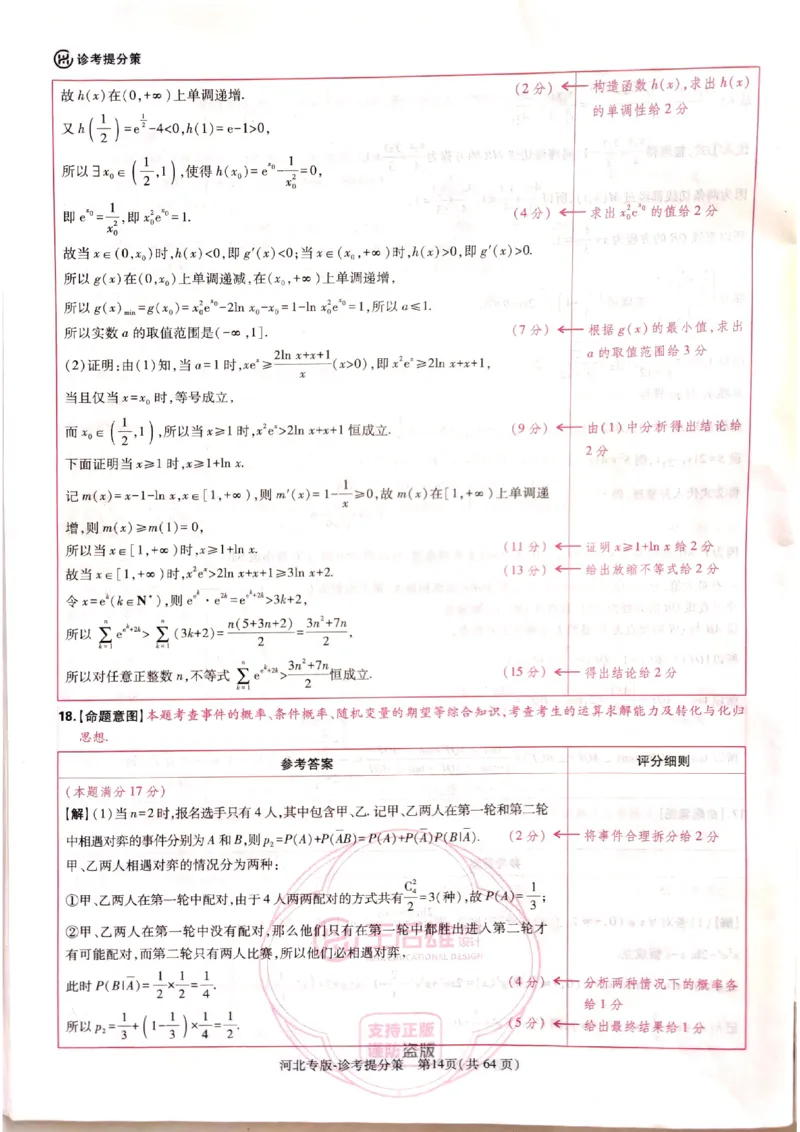 诊考提分策
故 h(x)在(0,+∞)上单调递增. (2分) ← 构造函数 h(x),求出 h(x)
的单调性给 2 分
又 h(1/2)=e^{1/2}-4<0,h(1)=e-1>0,
所以∃x₀∈(1/2,1),使得 h(x₀)=e^{x₀}-1/x₀²=0,
即 e^{x₀}=1/x₀²,即 x₀²e^{x₀}=1. (4分) ← 求出 x₀²e^{x₀} 的值给 2 分
故当 x∈(0,x₀)时,h(x)<0,即 g′(x)<0;当 x∈(x₀,+∞)时,h(x)>0,即 g′(x)>0.
所以 g(x)在(0,x₀)上单调递减,在(x₀,+∞)上单调递增,
所以 g(x)min=g(x₀)=x₀²e^{x₀}-2ln x₀-x₀=1-ln x₀²e^{x₀}=1,所以 a≤1.
所以实数 a 的取值范围是(-∞,1]. (7分) ← 根据 g(x)的最小值,求出
a 的取值范围给 3 分
(2)证明:由(1)知,当 a=1 时,xeˣ≥(2ln x+x+1)/x(x>0),即 x²eˣ≥2ln x+x+1,
当且仅当 x=x₀ 时,等号成立,
而 x₀∈(1/2,1),所以当 x≥1 时,x²eˣ>2ln x+x+1 恒成立. (9分) ← 由(1)中分析得出结论给
2 分
下面证明当 x≥1 时,x≥1+ln x.
记 m(x)=x-1-ln x,x∈[1,+∞),则 m′(x)=1-1/x≥0,故 m(x)在[1,+∞)上单调递
增,则 m(x)≥m(1)=0,
所以当 x∈[1,+∞)时,x≥1+ln x. (11分) ← 证明 x≥1+ln x 给 2 分
故当 x∈[1,+∞)时,x²eˣ>2ln x+x+1≥3ln x+2. (13分) ← 给出放缩不等式给 2 分
令 x=e^k(k∈N*),则 e^{e^k}·e^{2k}=e^{e^k+2k}>3k+2,
所以 ∑_{k=1}^{n} e^{e^k+2k}>∑_{k=1}^{n}(3k+2)=n(5+3n+2)/2=(3n²+7n)/2,
所以对任意正整数 n,不等式 ∑_{k=1}^{n} e^{e^k+2k}>(3n²+7n)/2 恒成立. (15分) ← 得出结论给 2 分
18.【命题意图】本题考查事件的概率、条件概率、随机变量的期望等综合知识,考查考生的运算求解能力及转化与化归
思想.
参考答案 评分细则
(本题满分 17 分)
【解】(1)当 n=2 时,报名选手只有 4 人,其中包含甲、乙.记甲、乙两人在第一轮和第二轮
中相遇对弈的事件分别为 A 和 B,则 p₂=P(A)+P(A̅B)=P(A)+P(A̅)P(B|A̅). (2分) ← 将事件合理拆分给 2 分
甲、乙两人相遇对弈的情况分为两种:
①甲、乙两人在第一轮中配对,由于 4 人两两配对的方式共有 C₄²/2=3(种),故 P(A)=1/3;
②甲、乙两人在第一轮中没有配对,那么他们只有在第一轮中都胜出进入第二轮才
有可能配对,而第二轮只有两人比赛,所以他们必相遇对弈,
此时 P(B|A̅)=1/2×1/2=1/4. (4分) ← 分析两种情况下的概率各
给 1 分
所以 p₂=1/3+(1-1/3)×1/4=1/2. (5分) ← 给出最终结果给 1 分
支持正版
谨防盗版
河北专版-诊考提分策 第14页(共 64 页)